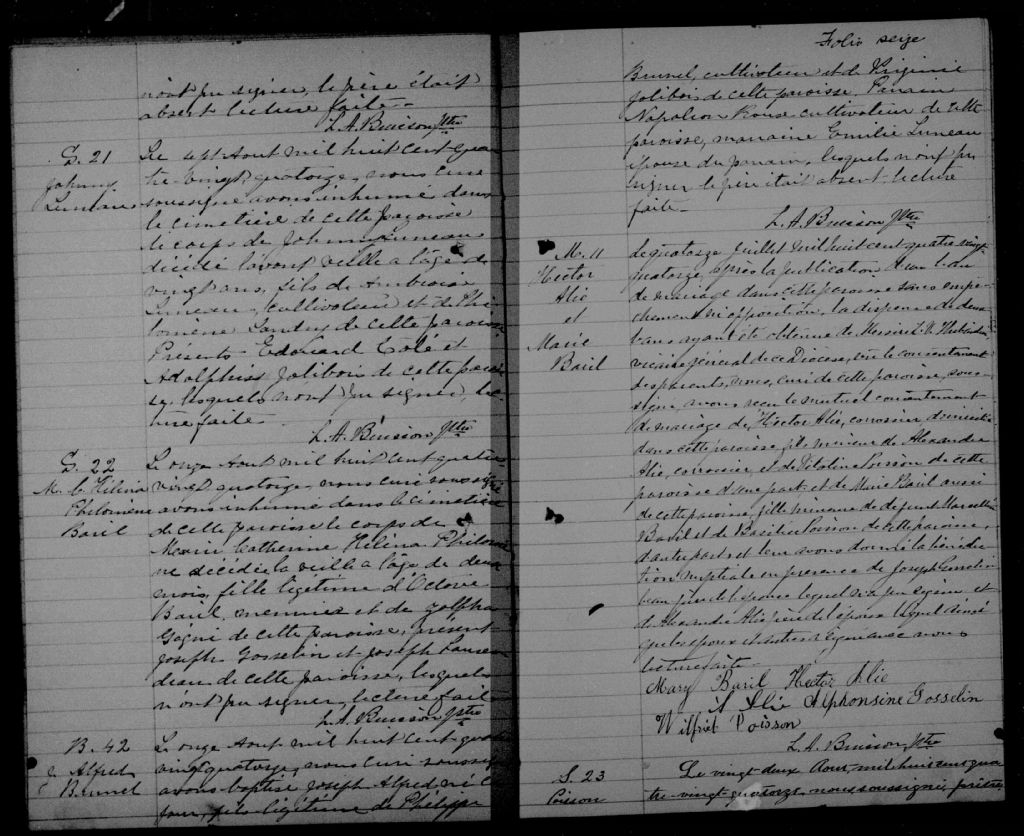 n'ont pu signer, le père était
absent lecture faite -
L. A. Buisson Ptre
S. 21
Johnny
Luneau
Le sept Aout mil huit cent qua
tre-vingt, quatorze, nous curé
soussigné avons inhumé dans
le cimetière de cette paroisse
le corps de Johnny Luneau
décédé l'avant veille a l'age de
vingt ans, fils de Ambroise
Luneau, cultivateur et de Phi-
lomene Landry de cette paroisse
Présents - Edouard Colé et
Adolphis Jolibois de cette parois
se, lesquels n'ont pu signer, lec
ture faite -
L. A. Buisson Ptre
S. 22
M. C. Hélina
Philomène
Baril
Le onze Aout mil huit cent quatre
vingt quatorze, nous curé soussigné
avons inhumé dans le cimetière
de cette paroisse le corps de
Marie Catherine Hélina Philomè
ne décédée la veille a l'age de deux
mois, fille légitime d'Octave
Baril, meunier et de
Gagné de cette paroisse, présents
Joseph Gosselin et Joseph
de cette paroisse, lesquels
n'ont pu signer, lecture faite
L. A. Buisson Ptre
B. 42
J. Alfred
Brunel
Le onze Aout mil huit cent quatre
vingt quatorze, nous curé soussigné
avons baptisé Joseph Alfred né le
jour, fils légitime de Philippe
Folio seize
Brunel, cultivateur et de Virginie
Jolibois de cette paroisse. Parrain
Napoleon Roux cultivateur de cette
paroisse, marraine Emilie Luneau
épouse du parrain, lesquels n'ont pu
signer le père était absent lecture
faite -
L. A. Buisson Ptre
M. 11
Hector
Alie
et
Marie
Baril
Le quatorze Juillet mil huit cent quatre vingt
quatorze, après la publication d'un ban
de mariage dans cette paroisse sans empê-
chement ni opposition, la dispense de deux
bans ayant été obtenue de Messire
vicaire général de ce Diocèse, vu le consentement
des parents, nous, curé de cette paroisse, sous-
signé, avons reçu le mutuel consentement
de mariage de Hector Alie, domicilié
dans cette paroisse, fils mineur de Alexandre
Alie, et de Poisson de cette
paroisse d'une part; et de Marie Baril aussi
de cette paroisse, fille mineure de defunt
Baril et de Poisson de cette paroisse,
d'autre part et leur avons donné la bénédic
tion nuptiale en presence de Joseph Gosselin
beau père de l'épouse lequel n'a pu signer et
de Alexandre Alie père de l'époux lequel ainsi
que les époux et autres signé avec nous -
lecture faite -
Mary Baril Hector Alie
A Alie Alphonsine Gosselin
Wilfrét Poisson
L. A. Buisson Ptre
S. 23
Poisson
Le vingt deux Aout, mil huit cent qua
tre-vingt-quatorze, nous soussigné, prêtre,